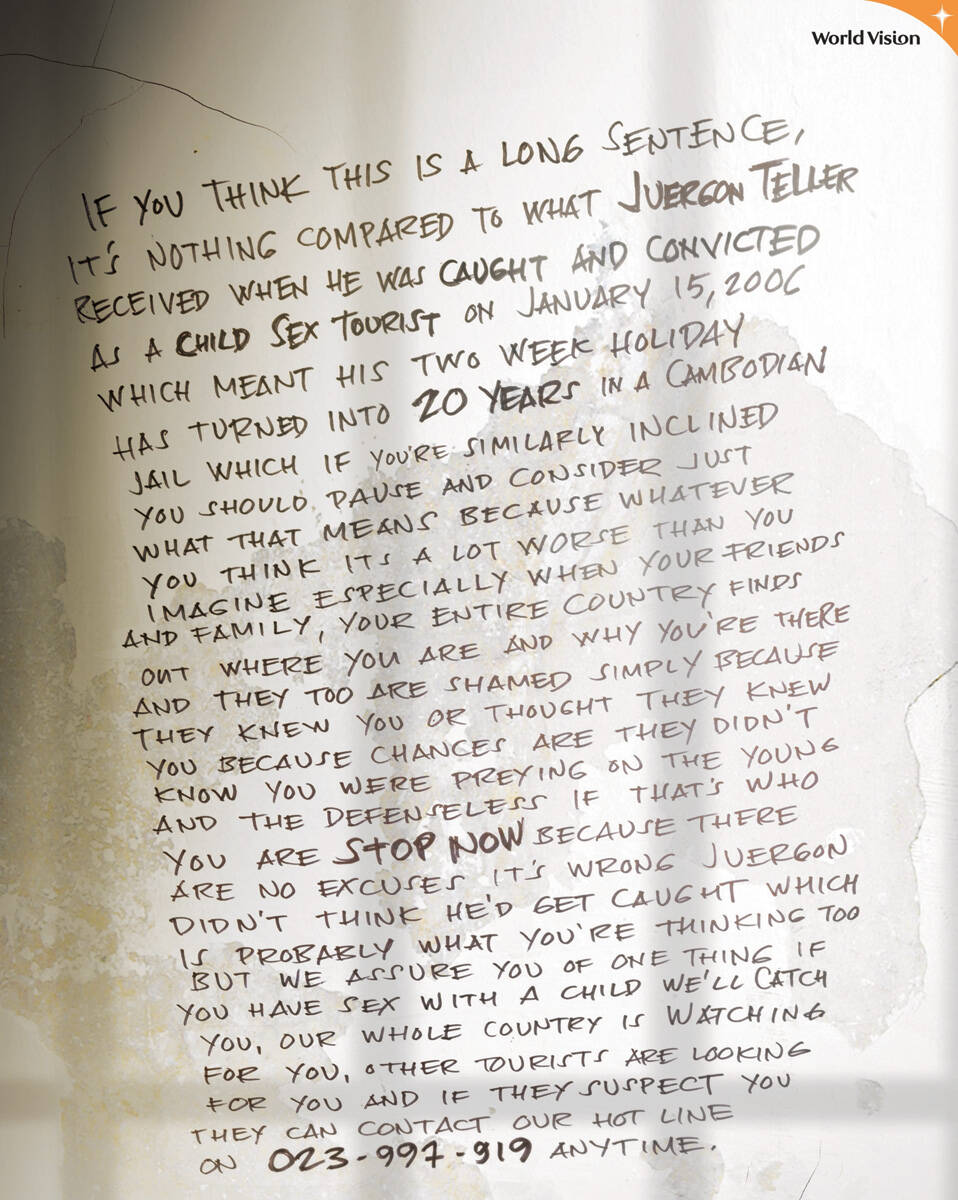 World Vision
IF YOU THINK THIS IS A LONG SENTENCE,
IT'S NOTHING COMPARED TO WHAT JUERGON TELLER
RECEIVED WHEN HE WAS CAUGHT AND CONVICTED
AS A CHILD SEX TOURIST ON JANUARY 15, 2006
WHICH MEANT HIS TWO WEEK HOLIDAY
HAS TURNED INTO 20 YEARS IN A CAMBODIAN
JAIL WHICH IF YOU'RE SIMILARLY INCLINED
YOU SHOULD PAUSE AND CONSIDER JUST
WHAT THAT MEANS BECAUSE WHATEVER
YOU THINK ITS A LOT WORSE THAN YOU
IMAGINE ESPECIALLY WHEN YOUR FRIENDS
AND FAMILY, YOUR ENTIRE COUNTRY FINDS
OUT WHERE YOU ARE AND WHY YOU'RE THERE
AND THEY TOO ARE SHAMED SIMPLY BECAUSE
THEY KNEW YOU OR THOUGHT THEY KNEW
YOU BECAUSE CHANCES ARE THEY DIDN'T
KNOW YOU WERE PREYING ON THE YOUNG
AND THE DEFENSELESS IF THAT'S WHO
YOU ARE STOP NOW BECAUSE THERE
ARE NO EXCUSES IT'S WRONG JUERGON
DIDN'T THINK HE'D GET CAUGHT WHICH
IS PROBABLY WHAT YOU'RE THINKING TOO
BUT WE ASSURE YOU OF ONE THING IF
YOU HAVE SEX WITH A CHILD WE'LL CATCH
YOU, OUR WHOLE COUNTRY IS WATCHING
FOR YOU, OTHER TOURISTS ARE LOOKING
FOR YOU AND IF THEY SUSPECT YOU
THEY CAN CONTACT OUR HOT LINE
ON 023-997-919 ANYTIME.